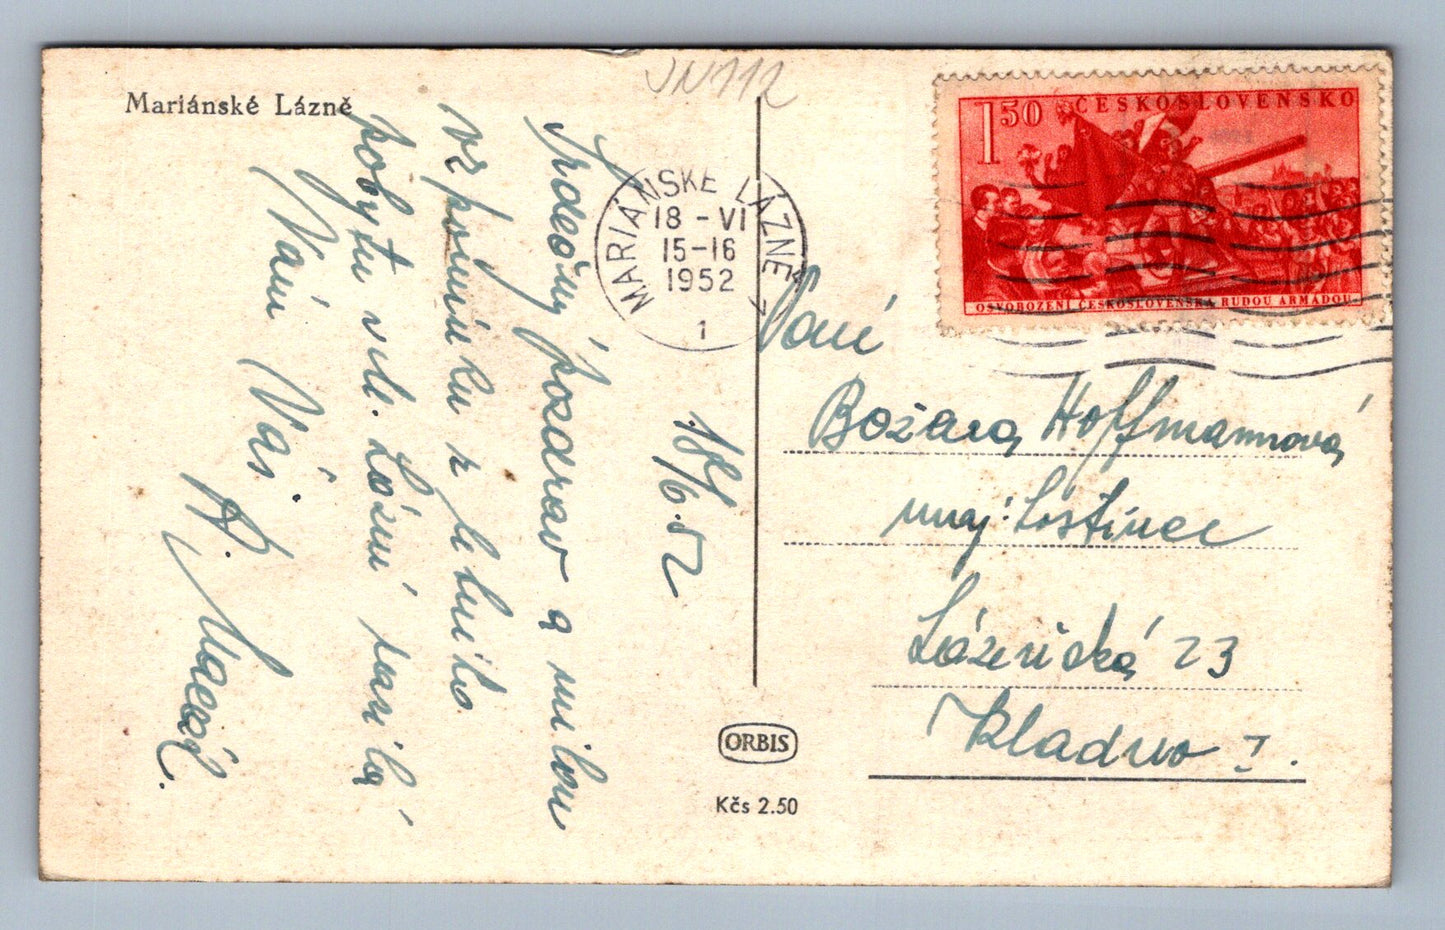 Mariánské Lázně
JN112
1.50 ČESKOSLOVENSKO
OSVOBOZENÍ ČESKOSLOVENSKA RUDOU ARMÁDOU
MARIÁNSKÉ LÁZNĚ 7
18 - VI
15-16
1952
1
18/6.52
Srdečný pozdrav a milou
vzpomínku z
pobytu vil. Lázní
Vám Váš
Paní
Božena Hoffmannová
maj: hostince
Lázeňská 23
Kladno I.
ORBIS
Kčs 2.50